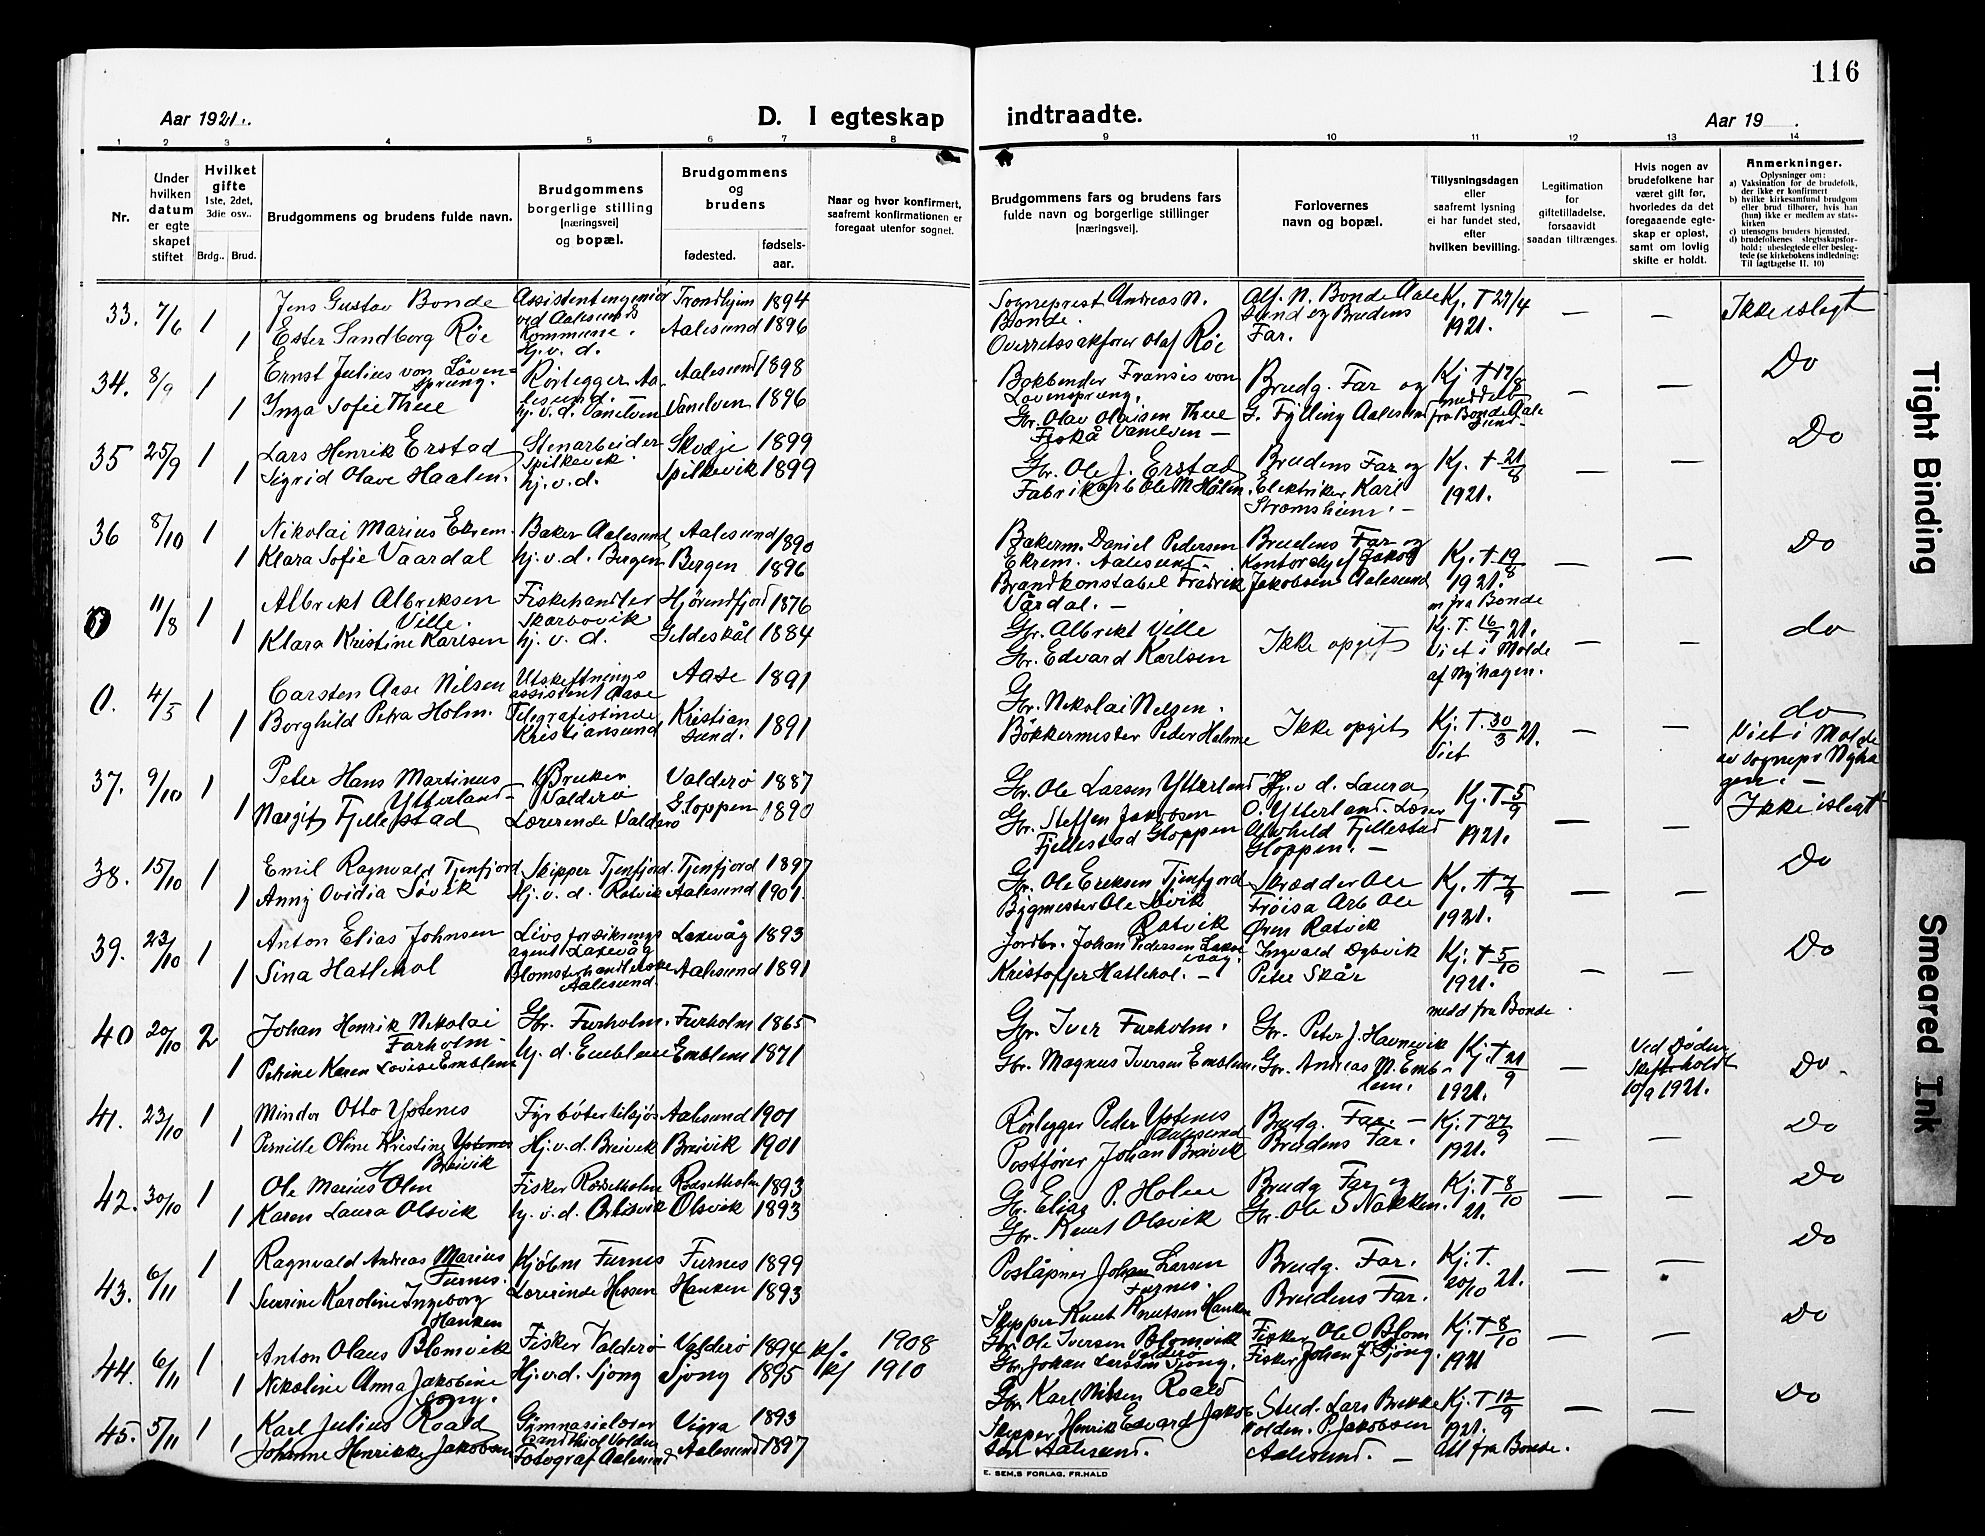 116
Aar 1921.
D. I egteskap indtraadte.
Aar 19 .
1 2 3 4 5 6 7 8 9 10 11 12 13 14
Nr.
Under hvilken datum er egteskapet stiftet
Hvilket gifte 1ste, 2det, 3die osv..
Brdg.. Brud.
Brudgommens og brudens fulde navn.
Brudgommens borgerlige stilling [næringsvei] og bopæl.
Brudgommens og brudens
fødested.
fødselsaar.
Naar og hvor konfirmert, saafremt konfirmationen er foregaat utenfor sognet.
Brudgommens fars og brudens fars fulde navn og borgerlige stillinger [næringsvei].
Forlovernes navn og bopæl.
Tillysningsdagen eller saafremt lysning ei har fundet sted, efter hvilken bevilling.
Legitimation for giftetilladelse, forsaavidt saadan tiltrænges.
Hvis nogen av brudefolkene har været gift før, hvorledes da det foregaaende egteskap er opløst, samt om lovlig skifte er holdt.
Anmerkninger.
Oplysninger om:
a) Vaksination for de brudefolk, der ikke er konfirmert
b) hvilke kirkesamfund brudgom eller brud tilhører, hvis han (hun) ikke er medlem av statskirken
c) utensogns bruders hjemsted.
d) brudefolkenes slegtsskapsforhold: ubeslegtede eller beslegtede (se kirkebokens indledning: Til Iagttagelse II. 10)
33. 7/6 1 Jens Gustav Bonde Assistentingeniør ved Aalesunds Kommune. Trondhjem 1894 Sogneprest Andreas N. Bonde. Alf. N. Bonde Aalesund og Brudens Far. Kj. T 27/4 1921. — — Ikke i slegt
1 Ester Sandborg Røe Hj. v. d. Aalesund 1896 Overretssakfører Olaf Røe
34. 8/9 1 Ernst Julius von Løvensprung. Rørlegger Aalesund. — Aalesund 1898 Bokbinder Fransis von Løvensprung. Brudg. Far og G. Fylling Aalesund Kj. T 17/8 meddelt fra Bonde Aalesund — — Do
1 Inga Sofie Thue hj. v. d. Vanelven Vanelven 1896 Gbr. Olav Olaisen Thue Fiskå Vanelven —
35 25/9 1 Lars Henrik Erstad Stenarbeider Spilkevik. Skodje 1899 Gbr. Ole J. Erstad Brudens Far og Elektriker Karl Strømsheim. — Kj. T 21/8 1921. — — Do
1 Sigrid Olave Haalen. hj. v. d. Spilkevik 1899 Fabrikarb Ole M Hålen.
36 8/10 1 Nikolai Marius Ekrem. Baker Aalesund Aalesund 1890 Bakerm. Daniel Pedersen Ekrem. Aalesund. Brudens Far og Kontorchef Jakob Jakobsen Aalesund Kj. T 19/8 1921. m fra Bonde — — Do
1 Klara Sofie Vaardal hj. v. d. Bergen Bergen 1896 Brandkonstabel Fredrik Vårdal. —
0 11/8 1 Albrikt Albriksen Ville. Fiskehandler Skarbøvik Hjørendfjord 1876 Gbr. Albrikt Ville Ikke opgit Kj. T. 16/7 21. Viet i Molde af Nyhagen. — — do
1 Klara Kristine Karlsen hj. v. d. Gildeskål 1884 Gbr. Edvard Karlsen
0. 4/5 1 Carsten Aase Nilsen Utskiftnings assistent Aase Aase 1891 Gbr. Nikolai Nilsen. Ikke opgit Kj. T. 30/3 21. Viet — — do Viet i Molde av sognepr Nyhagen. —
1 Borghild Petra Holm. Telegrafistinde Kristiansund Kristiansund. 1891 Bøkkermester Peder Holme
37. 9/10 1 Peter Hans Martinus Ytterland Bruker Valderø Valderø 1887 Gbr. Ole Larsen Ytterland Hj. v. d. Laura O. Ytterland. Kj. T 5/9 1921. — — Ikke i slegt
1 Margit Fjellestad Lærerinde Valderø Gloppen 1890 Gbr. Steffen Jakobsen Fjellestad Gloppen Fjellestad Gloppen. —
38. 15/10 1 Emil Ragnvald Tjenfjord Skipper Tjenfjord. Tjenfjord 1897 Gbr. Ole Eriksen Tjenfjord Skrædder Ole Frøisa Arb Ole Øren Ratvik Kj. T 7/9 1921. — — Do
1 Anny Ovidia Søvik Hj. v. d. Ratvik Aalesund 1901. Bygmester Ole Søvik Ratvik
39. 23/10 1 Anton Elias Johnsen Livsforsikrings agent Laxevåg Laxevåg 1893 Jordbr. Johan Pedersen Laxevaag. Ingvald Dybvik Kj. T 5/10 1921. — — Do
1 Sina Hatlehol Blomsterhandlerske Aalesund. Aalesund 1891 Kristoffer Hatlehol. — Peter Skår meld fra Bonde
40 20/10 2 Johan Henrik Nikolai Furholm — Gbr. Furholm. Furholm 1865 Gbr. Iver Furholm. Gbr. Peter J. Havnevik Kj. T 21/9 1921. — Ved Døden Skifte holdt 10/9 1921. Do.
1 Petrine Karen Lovise Emblem hj. d. Emblem Emblem 1871 Gbr. Magnus Iversen Emblem. Gbr. Andreas M. Emblem.
41. 23/10 1 Mindor Otto Ystenes Fyrbøter tilsjøs Aalesund 1901 Rørlegger Peder Ystenes Aalesund Brudg. Far. — Kj. T 27/9 1921. — — Do
1 Pernille Oline Kristine Ystenes Breivik Hj. v. d. Breivik Breivik 1901 Postfører Johan Breivik Brudens Far.
42. 30/10 1 Ole Marius Holm Fisker Roaldsholm 1893 Gbr. Elias P. Holm Brudg Far og Kj. T 8/10 21. — — Do
1 Karen Laura Olsvik hj. v. d. Olsvik Olsvik 1893 Gbr. Knut Olsvik Gbr. Ole S Nakken.
43. 6/11 1 Ragnvald Andreas Marius Furnes. Kjøbm Furnes Furnes 1899 Poståpner Johan Larsen Furnes. Brudg. Far. Kj. T. 20/10 21. — — Do
1 Severine Karoline Ingeborg Hanken Lærerinde Hessen Hanken 1893 Skipper Knut Knutsen Hanken Brudens Far.
44. 6/11 1 Anton Olaus Blomvik Fisker Valderø Valderø 1894 kf. 1908 Gbr. Ole Iversen Blomvik Valderø Fisker Ole O Blomvik Kj. T 8/10 1921 — — Do
1 Nikoline Anna Jakobine Sjong. Hj. v. d. Sjong Sjong 1895 kf 1910 Gbr. Johan Larsen Sjong. Fisker Johan J. Sjong.
45. 5/11 1 Karl Julius Roald Gymnasielærer Cand Theol Volden Vigra 1893 Gbr. Karl Nilsen Roald Stud. Lars Brekke Volden. P. Jakobsen Aalesund. — Kj. T 12/9 1921. Att fra Bonde. — — Do
1 Johanne Henrikke Jakobsen Fotograf Aalesund Aalesund 1897 Skipper Henrik Edvard Jakobsen Aalesund.
E. SEM,S FORLAG, FR.HALD
Tight Binding
Smeared Ink